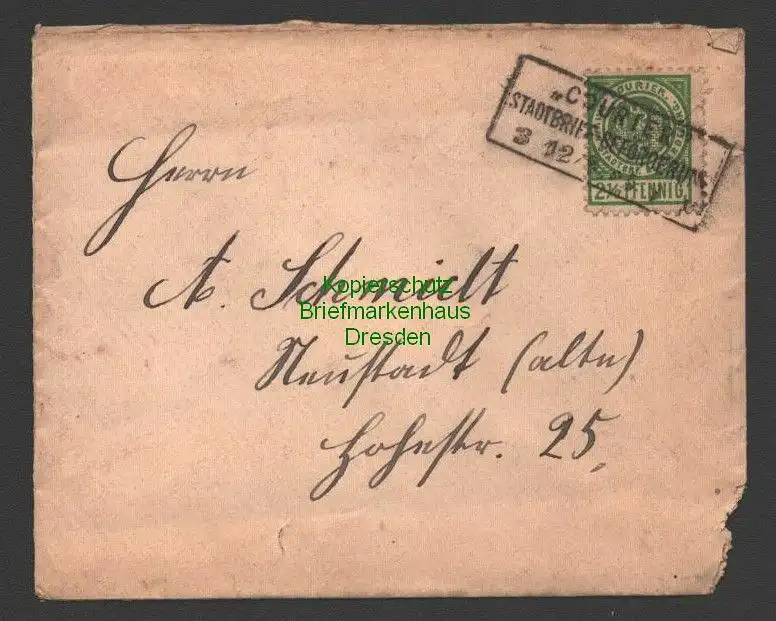 „COURIER“
STADTBRIEF-BEFÖRDERUNG
3 12
COURIER
2½ PFENNIG
Herrn
A. Schmidt
Kopierschutz
Briefmarkenhaus
Dresden
Neustadt (alte)
Hohestr. 25.